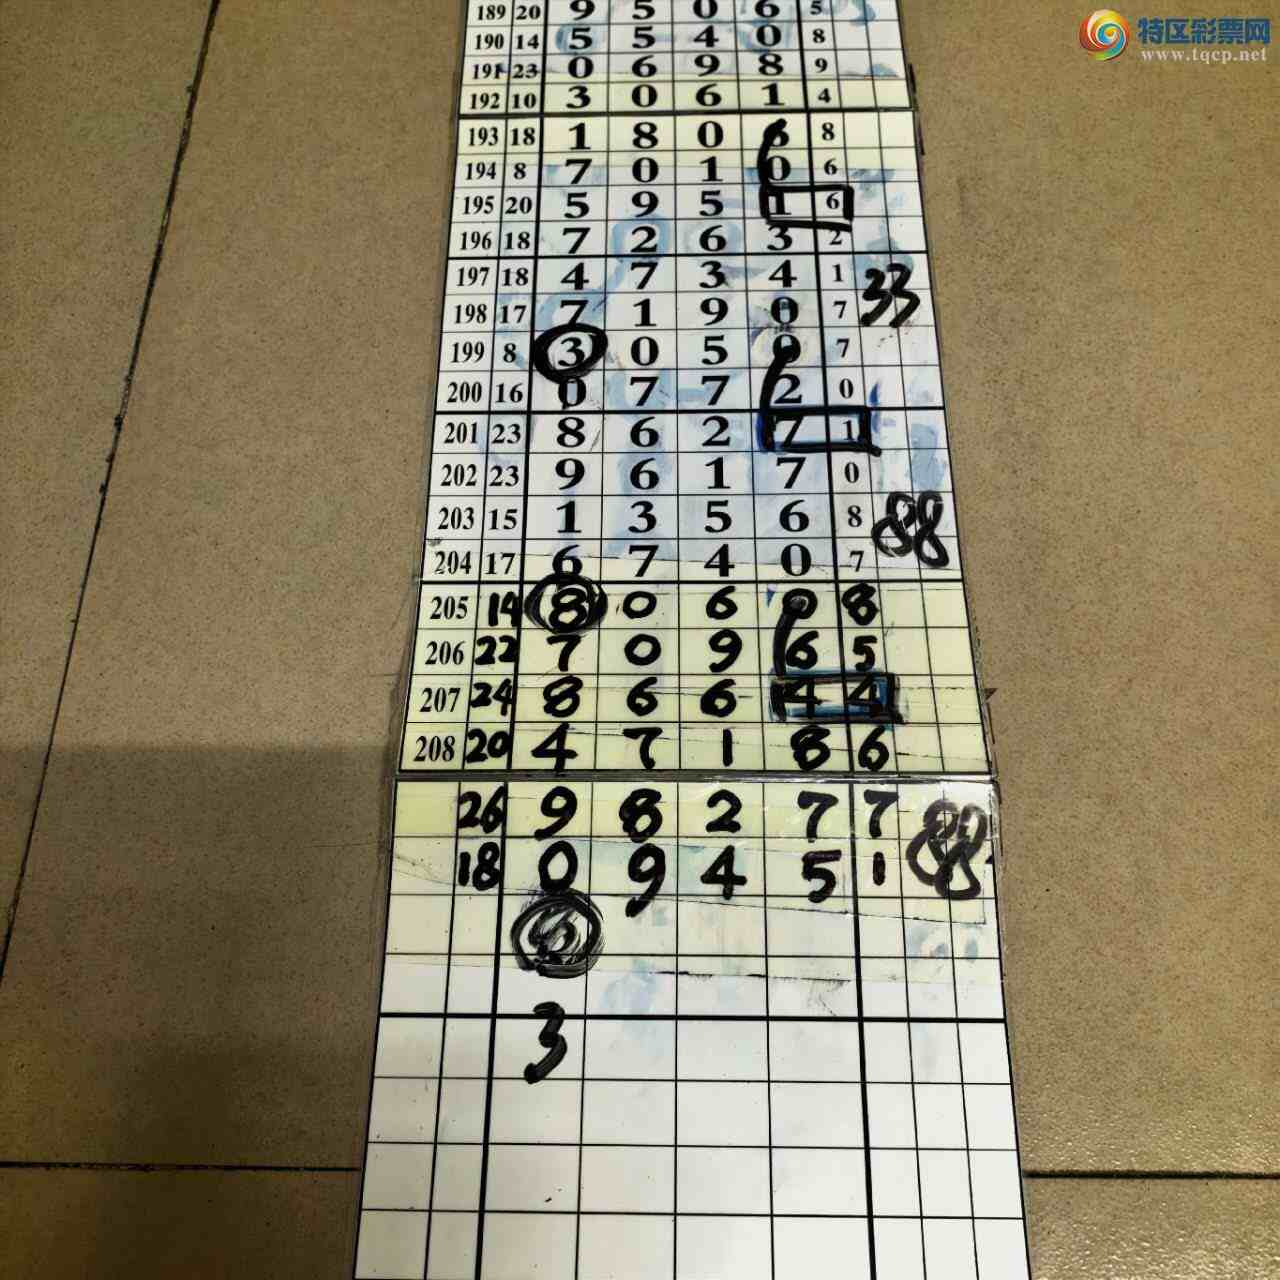 特区彩票网
www.tqcp.net
189 20 9 5 0 6 5
190 14 5 5 4 0 8
191 23 0 6 9 8 9
192 10 3 0 6 1 4
193 18 1 8 0 6 8
194 8 7 0 1 0 6
195 20 5 9 5 1 6
196 18 7 2 6 3 2
197 18 4 7 3 4 1
33
198 17 7 1 9 0 7
199 8 3 0 5 0 7
200 16 0 7 7 2 0
201 23 8 6 2 7 1
202 23 9 6 1 7 0
203 15 1 3 5 6 8
88
204 17 6 7 4 0 7
205 14 8 0 6 0 8
206 22 7 0 9 6 5
207 24 8 6 6 4 4
208 20 4 7 1 8 6
26 9 8 2 7 7
88
18 0 9 4 5 1
3